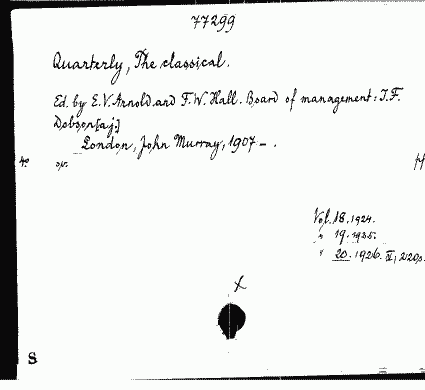 77299
Quarterly, The classical.
Ed. by E.V. Arnold and F.W. Hall. Board of management: J.F.
Dobson [a.j.]
London, John Murray, 1907 - .
4o
Vol. 18. 1924.
" 19. 1925.
" 20. 1926. IV, 220 p.
x
S